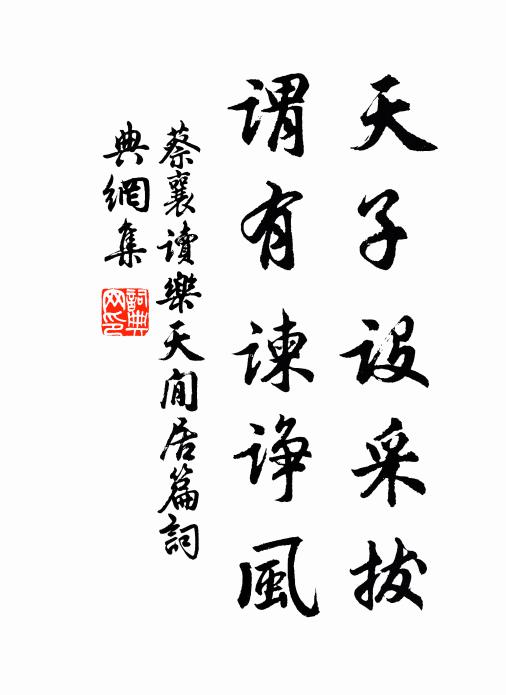 天子設采拔
謂有諫諍風
蔡襄讀樂天閒居篇詞
典網集
詞典網印